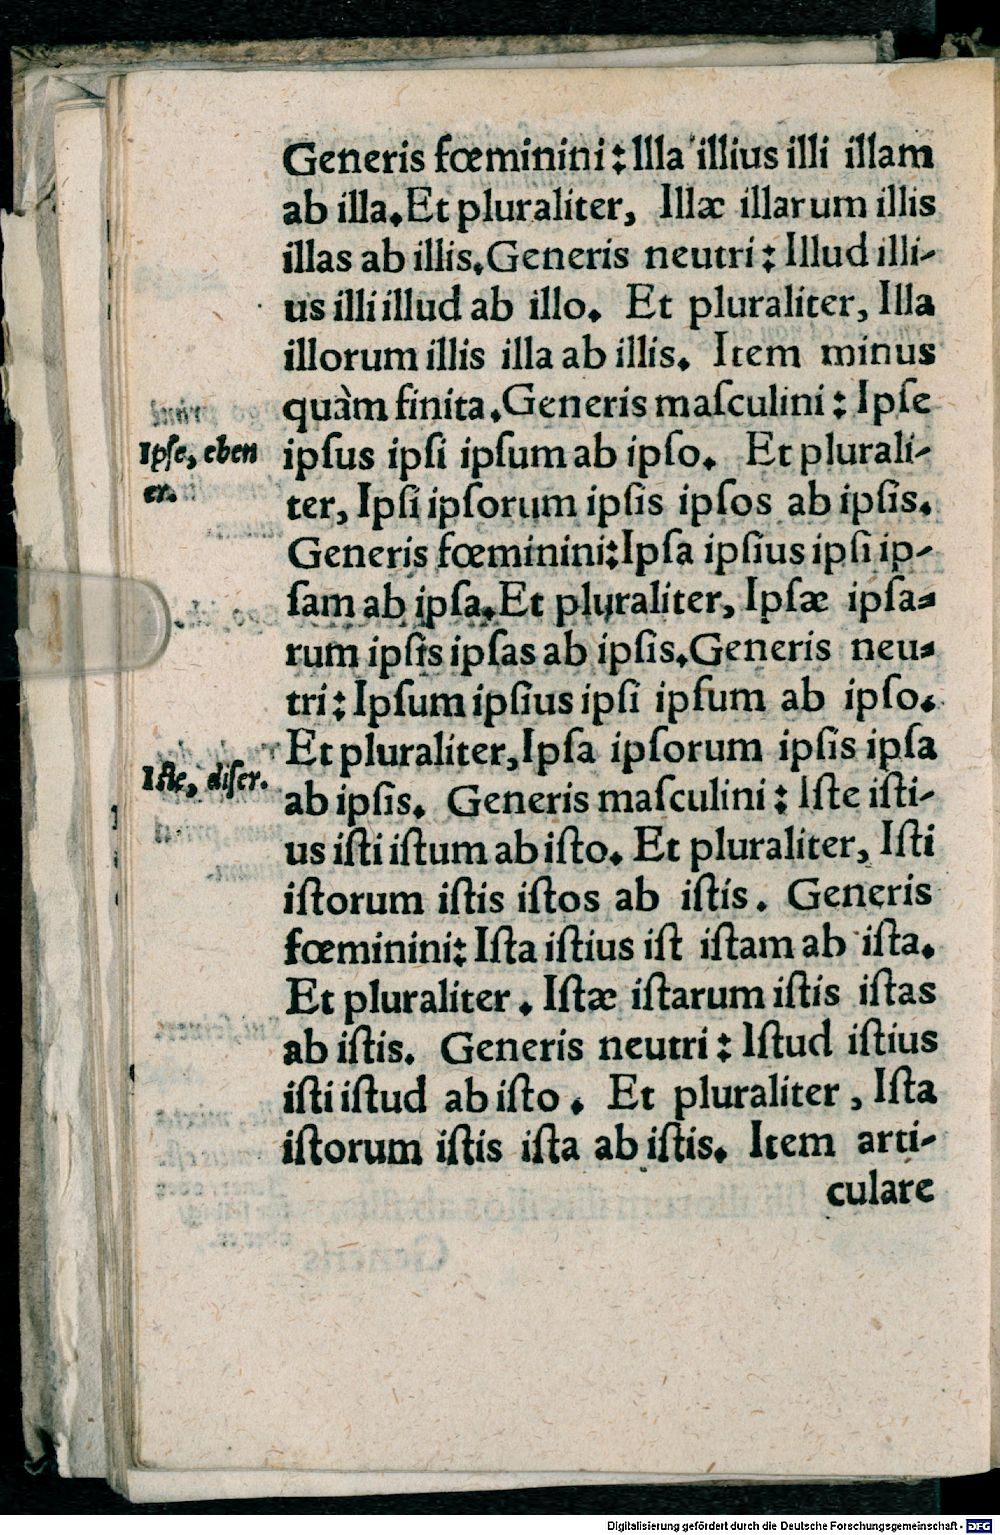 Generis fœminini: Illa illius illi illam
ab illa. Et pluraliter, Illæ illarum illis
illas ab illis. Generis neutri: Illud illi-
us illi illud ab illo. Et pluraliter, Illa
illorum illis illa ab illis. Item minus
quàm finita. Generis maſculini: Ipſe
Ipſe, eben
er.
ipſus ipſi ipſum ab ipſo. Et plurali-
ter, Ipſi ipſorum ipſis ipſos ab ipſis.
Generis fœminini: Ipſa ipſius ipſi ip-
ſam ab ipſa. Et pluraliter, Ipſæ ipſa-
rum ipſis ipſas ab ipſis. Generis neu-
tri: Ipſum ipſius ipſi ipſum ab ipſo.
Et pluraliter, Ipſa ipſorum ipſis ipſa
Iſte, diſer.
ab ipſis. Generis maſculini: Iſte iſti-
us iſti iſtum ab iſto. Et pluraliter, Iſti
iſtorum iſtis iſtos ab iſtis. Generis
fœminini: Iſta iſtius iſt iſtam ab iſta.
Et pluraliter. Iſtæ iſtarum iſtis iſtas
ab iſtis. Generis neutri: Iſtud iſtius
iſti iſtud ab iſto. Et pluraliter, Iſta
iſtorum iſtis iſta ab iſtis. Item arti-
culare
Digitalisierung gefördert durch die Deutsche Forschungsgemeinschaft - DFG